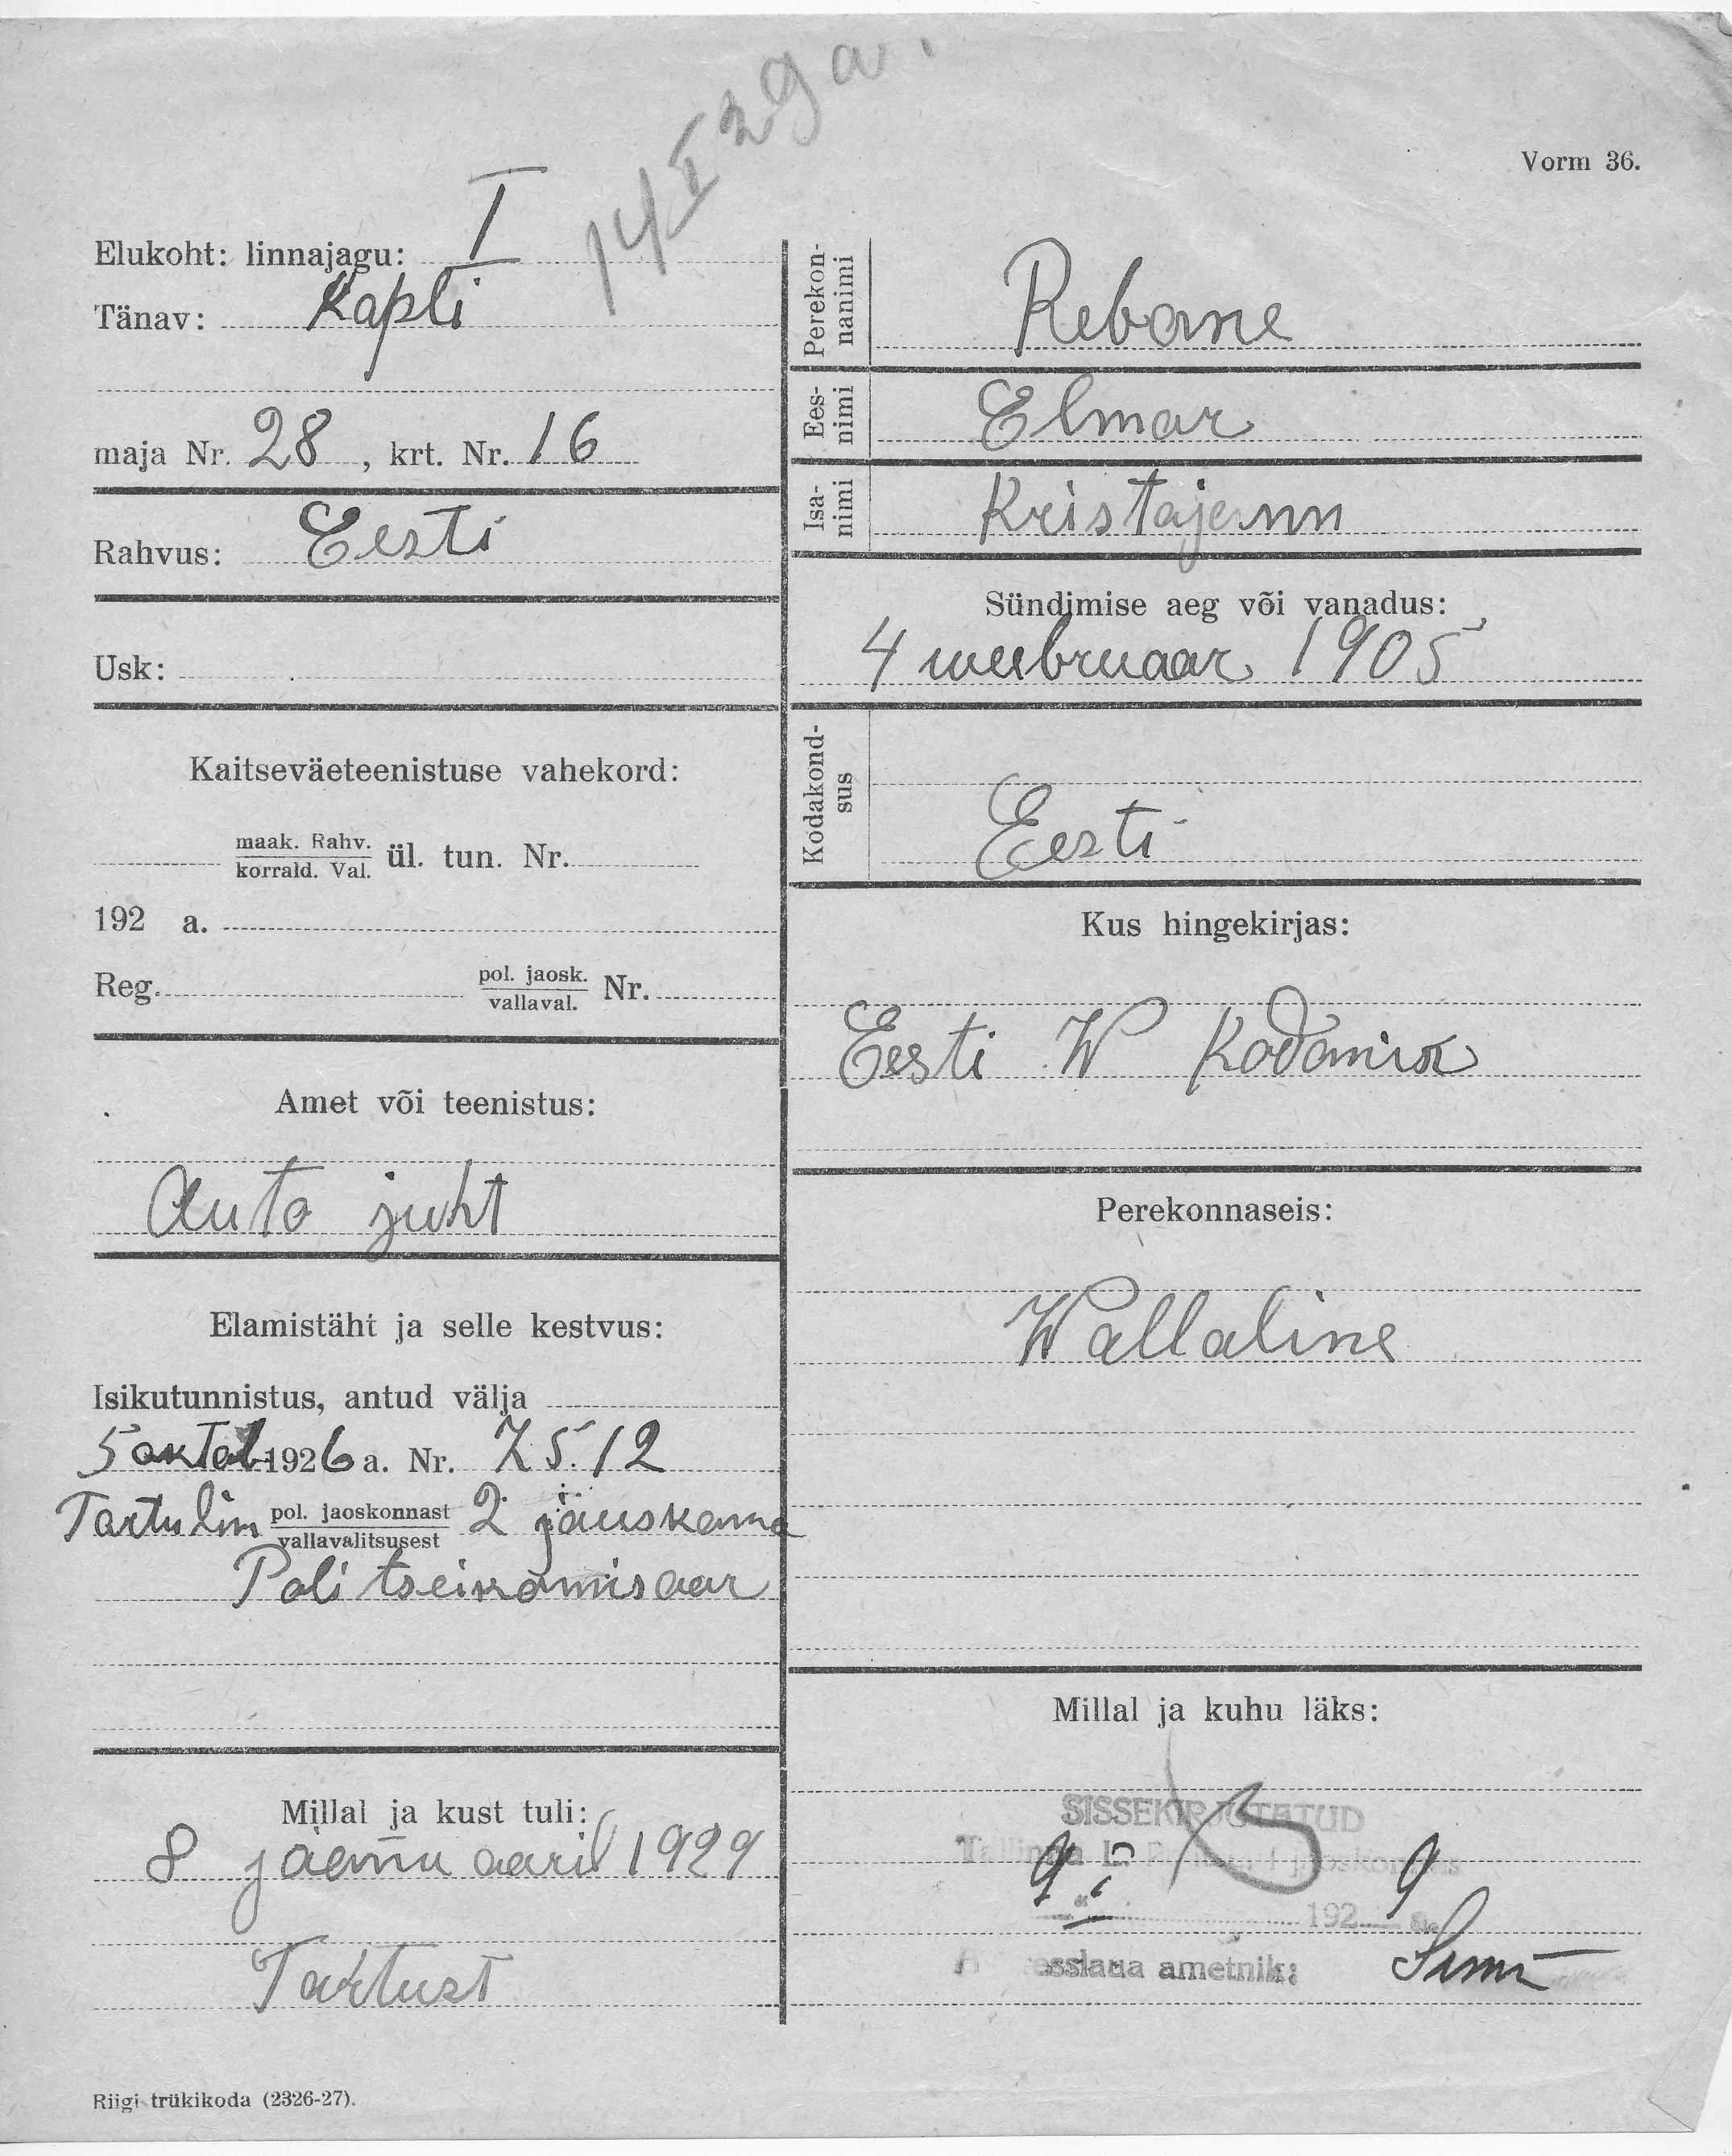 14 I 29 a.
Vorm 36.
Elukoht: linnajagu: I
Tänav: Kapli
maja Nr. 28, krt. Nr. 16
Rahvus: Eesti
Usk:
Kaitseväeteenistuse vahekord:
maak. Rahv.
korrald. Val. ül. tun. Nr.
192 a.
Reg. pol. jaosk.
vallaval. Nr.
Amet või teenistus:
Auto juht
Elamistäht ja selle kestvus:
Isikutunnistus, antud välja
5 oktob 1926 a. Nr. 7512
Tartu lin pol. jaoskonnast 2 jauskonna
vallavalitsusest
Politseikomisaar
Millal ja kust tuli:
8 jaennuaaril 1929
Tartust
Riigi trükikoda (2326-27).
Perekon-
nanimi
Rebane
Ees-
nimi
Elmar
Isa-
nimi
Kristajenn
Sündimise aeg või vanadus:
4 weebruaar 1905
Kodakond-
sus
Eesti
Kus hingekirjas:
Eesti W Kodanik
Perekonnaseis:
Wallaline
Millal ja kuhu läks:
SISSEKIRJUTATUD
Tallinna jaoskonnas
9 I 1929 a.
Aadresslaua ametnik: